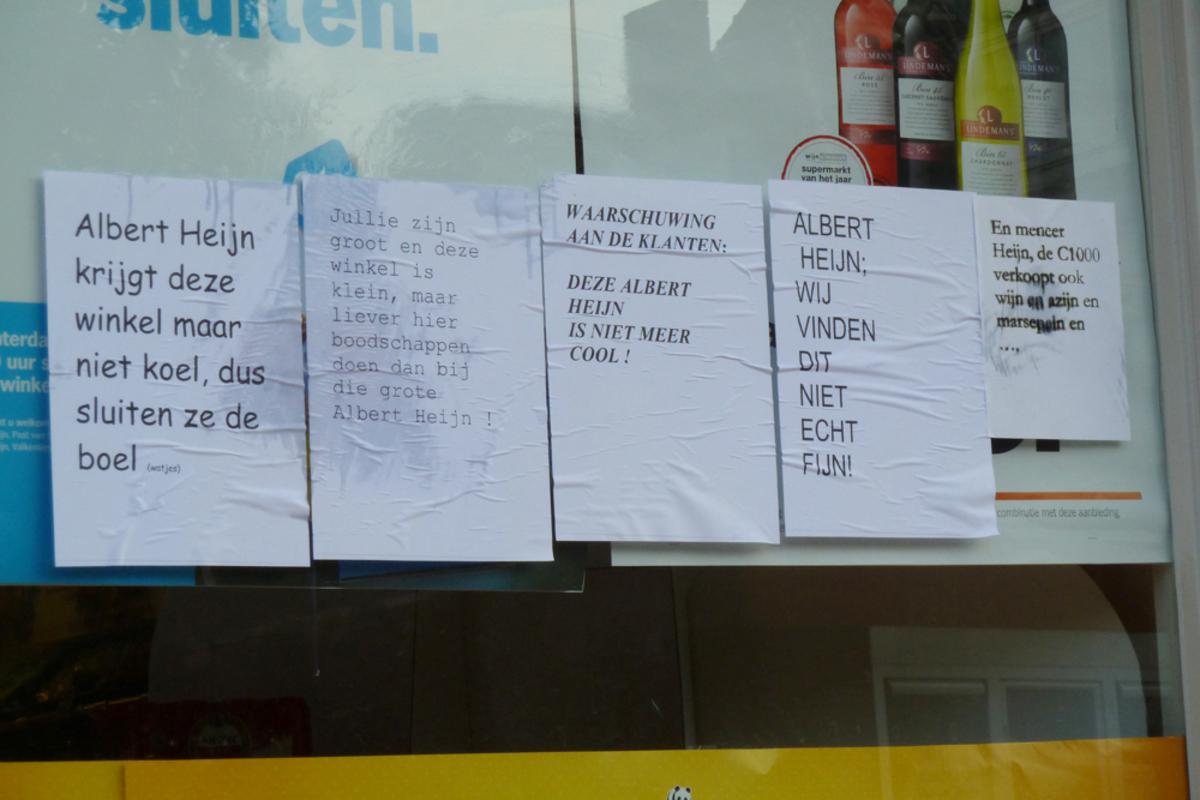 sluiten.
LINDEMAN'S
LINDEMAN'S
LINDEMAN'S
LINDEMAN'S
ROSÉ
Bin 65
CHARDONNAY
supermarkt
van het jaar
Albert Heijn
krijgt deze
winkel maar
niet koel, dus
sluiten ze de
boel (watjes)
Jullie zijn
groot en deze
winkel is
klein, maar
liever hier
boodschappen
doen dan bij
die grote
Albert Heijn !
WAARSCHUWING
AAN DE KLANTEN:
DEZE ALBERT
HEIJN
IS NIET MEER
COOL !
ALBERT
HEIJN;
WIJ
VINDEN
DIT
NIET
ECHT
FIJN!
En meneer
Heijn, de C1000
verkoopt ook
wijn en azijn en
marsepein en
....
combinatie met deze aanbieding.
uur s
winke